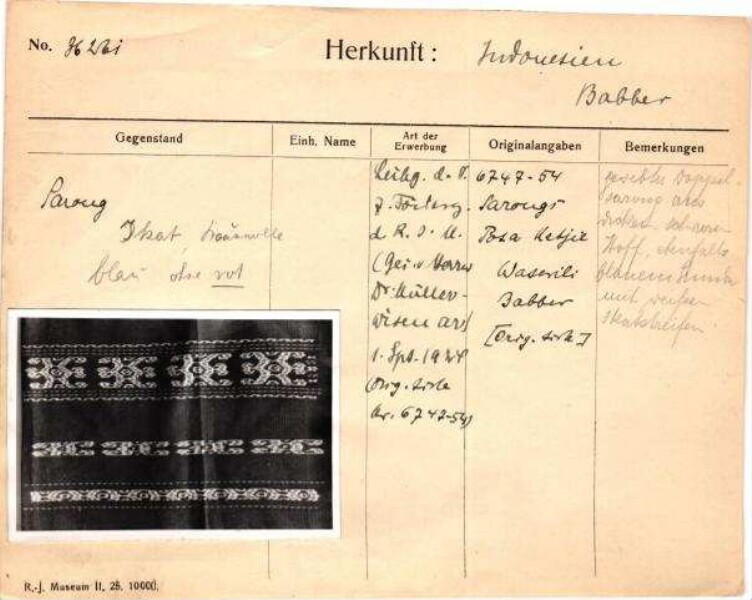 No. 36261
Herkunft: Indonesien
Babber
Gegenstand
Einh. Name
Art der Erwerbung
Originalangaben
Bemerkungen
Sarong
Ikat, Baumwolle
blau ohne rot
Leihg. d. V.
z. Förderg.
d. R. J. M.
Dr. Müller-
Wismar)
1. Spt. 1928
(Orig. Liste
Nr. 6747-54)
6747-54
Sarongs
Babber
[Orig. Liste]
Doppel-
sarong aus
Stoff, ebenfalls
mit weissen
Ikatstreifen.
R.-J. Museum II. 25. 10000.